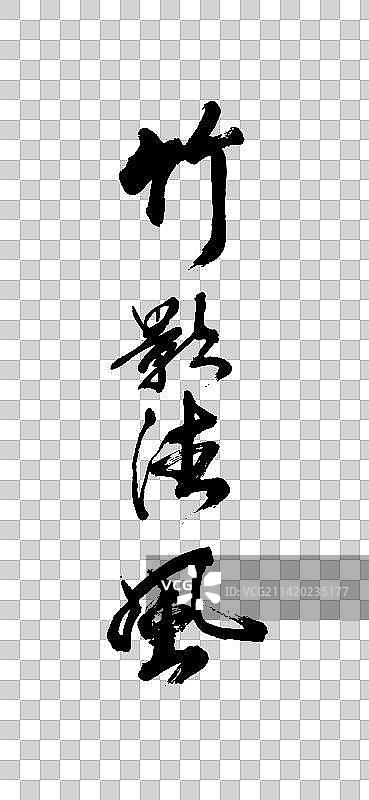 竹影清風
VCG
ID:VCG211420235177